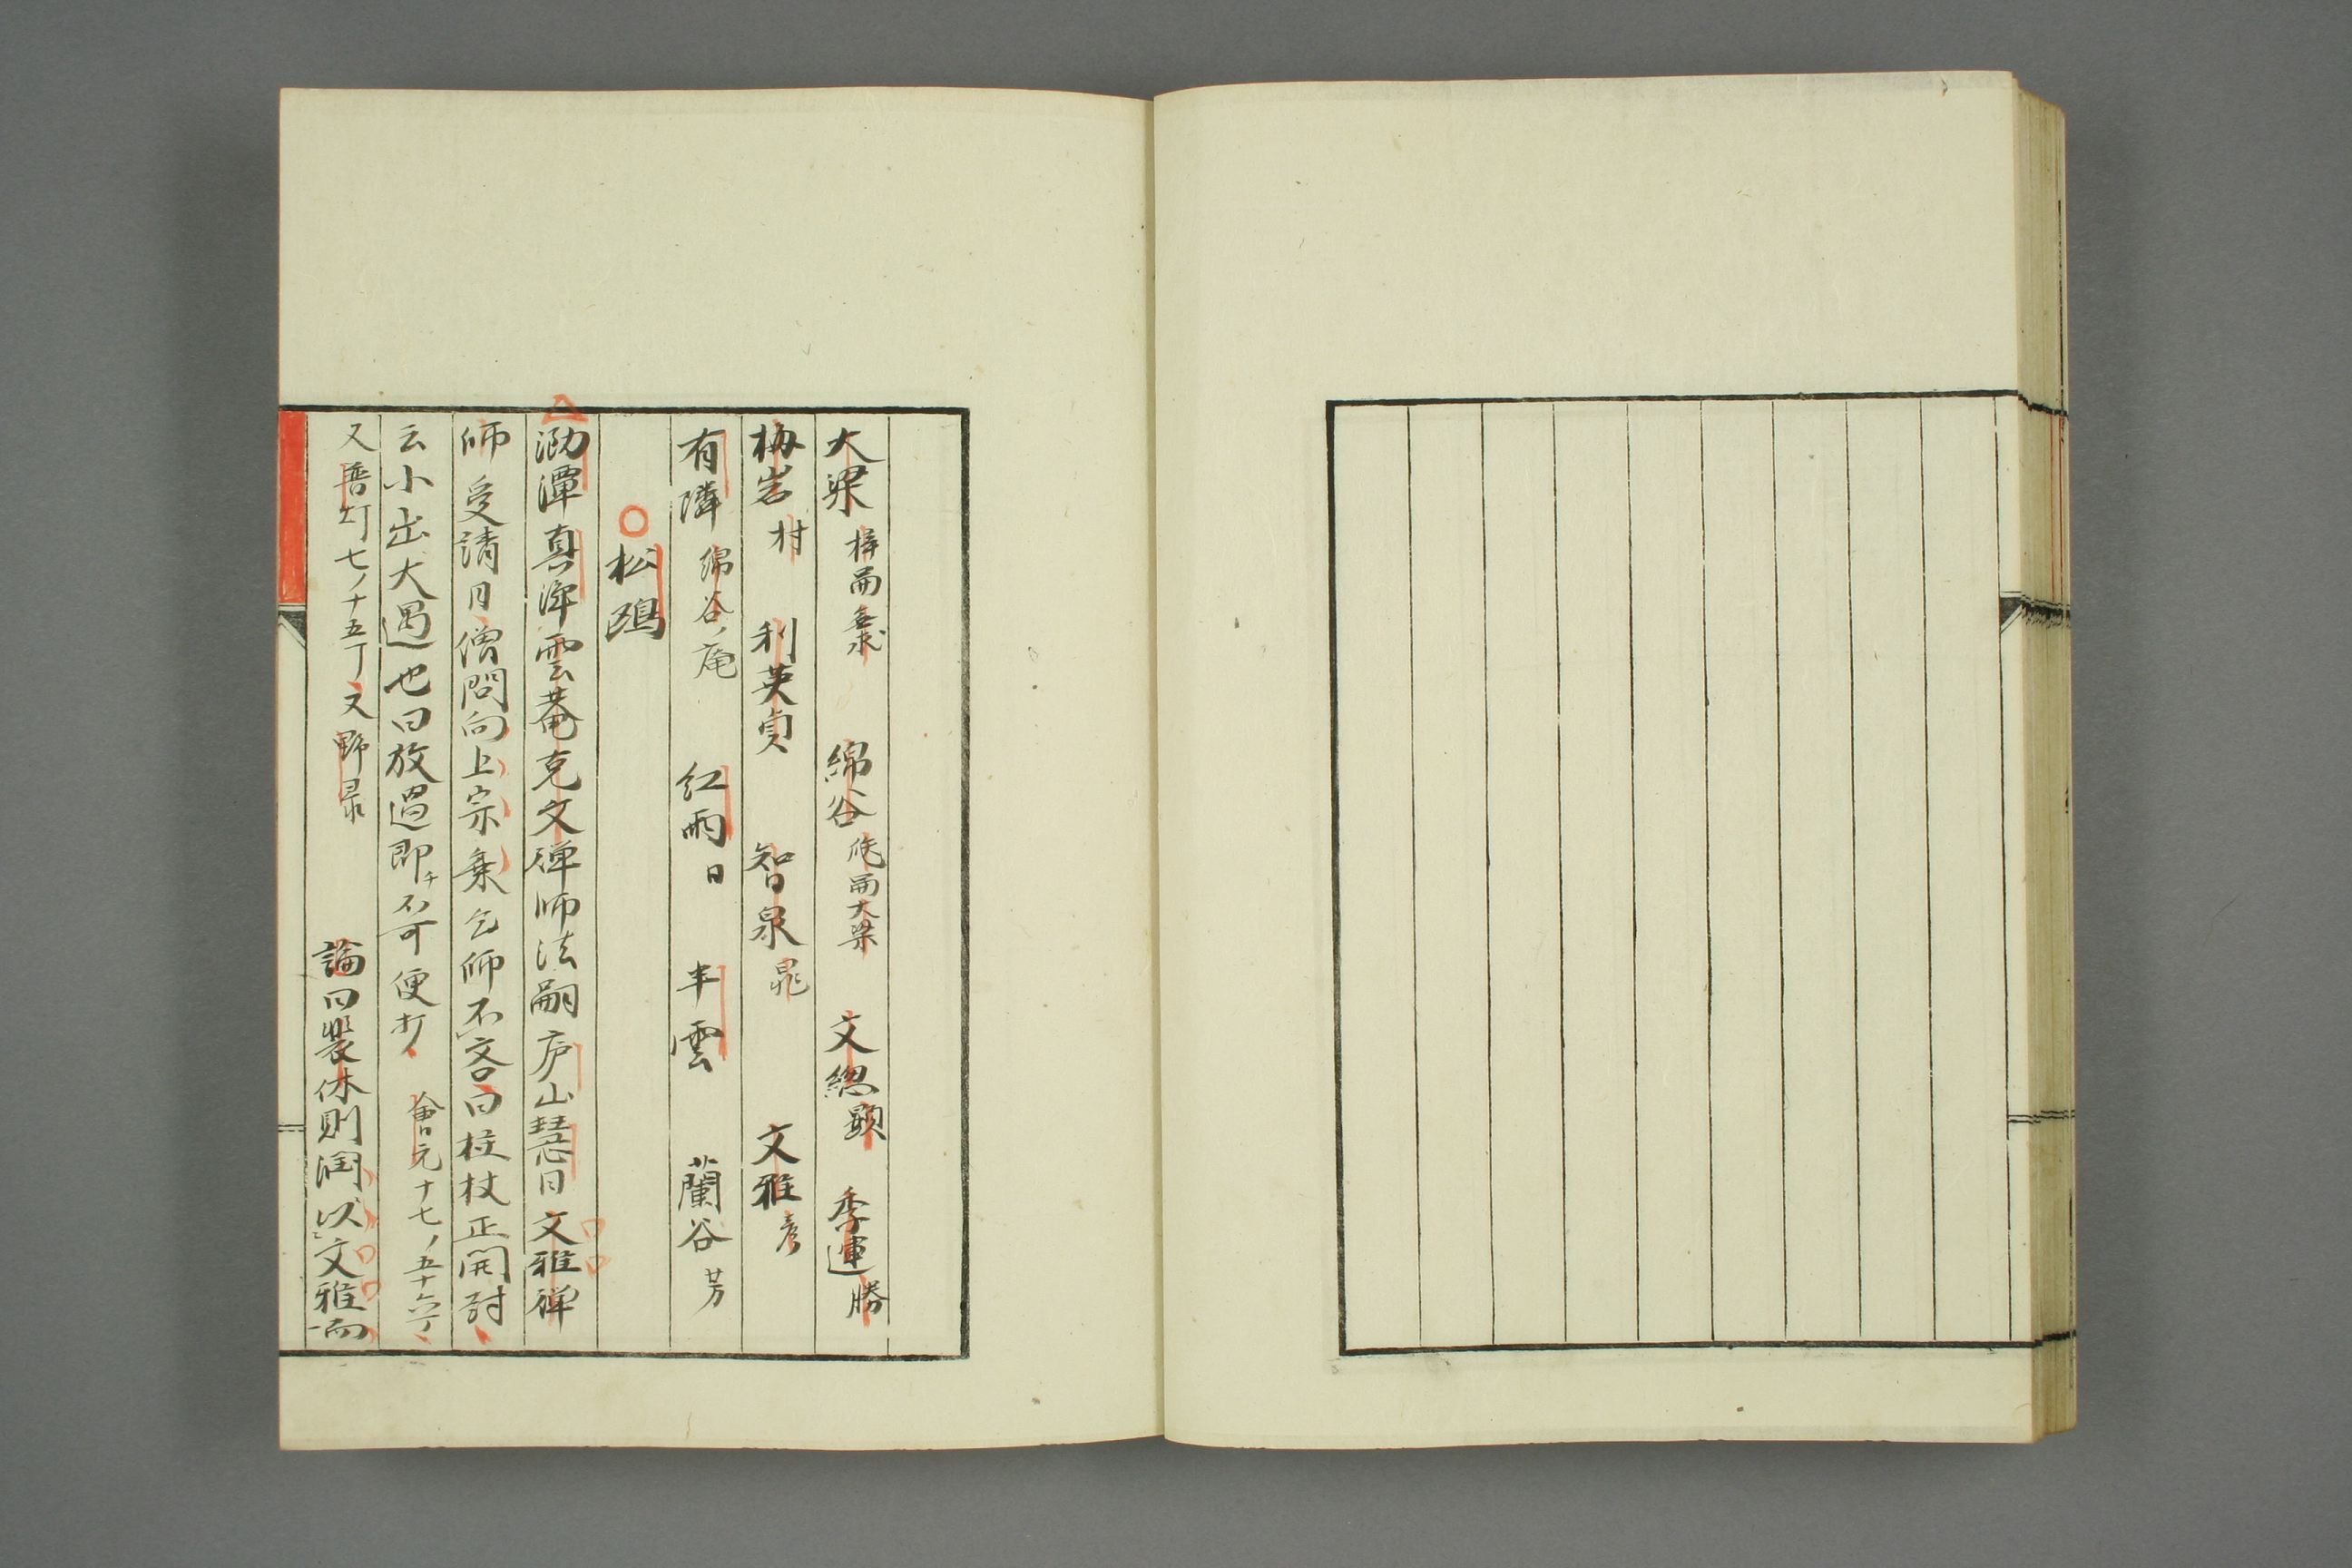 大梁 梓甫 綿谷 㒵甫大梁 文総顕 季運勝
梅岩村 利英貞 智泉晁 文雅彦
有隣 綿谷ノ庵 紅雨日 半雲 蘭谷芳
○松鴎
泐潭真浄雲菴克文禅師法嗣庐山慧日文雅禅
師受請日僧問向上宗乗乞師不吝曰柱杖正開封
云小出大遇也曰放過即チ不可便打 會元十七ノ五十六丁
又普灯七ノ十五丁又野录 論曰裴休則潤以文雅而